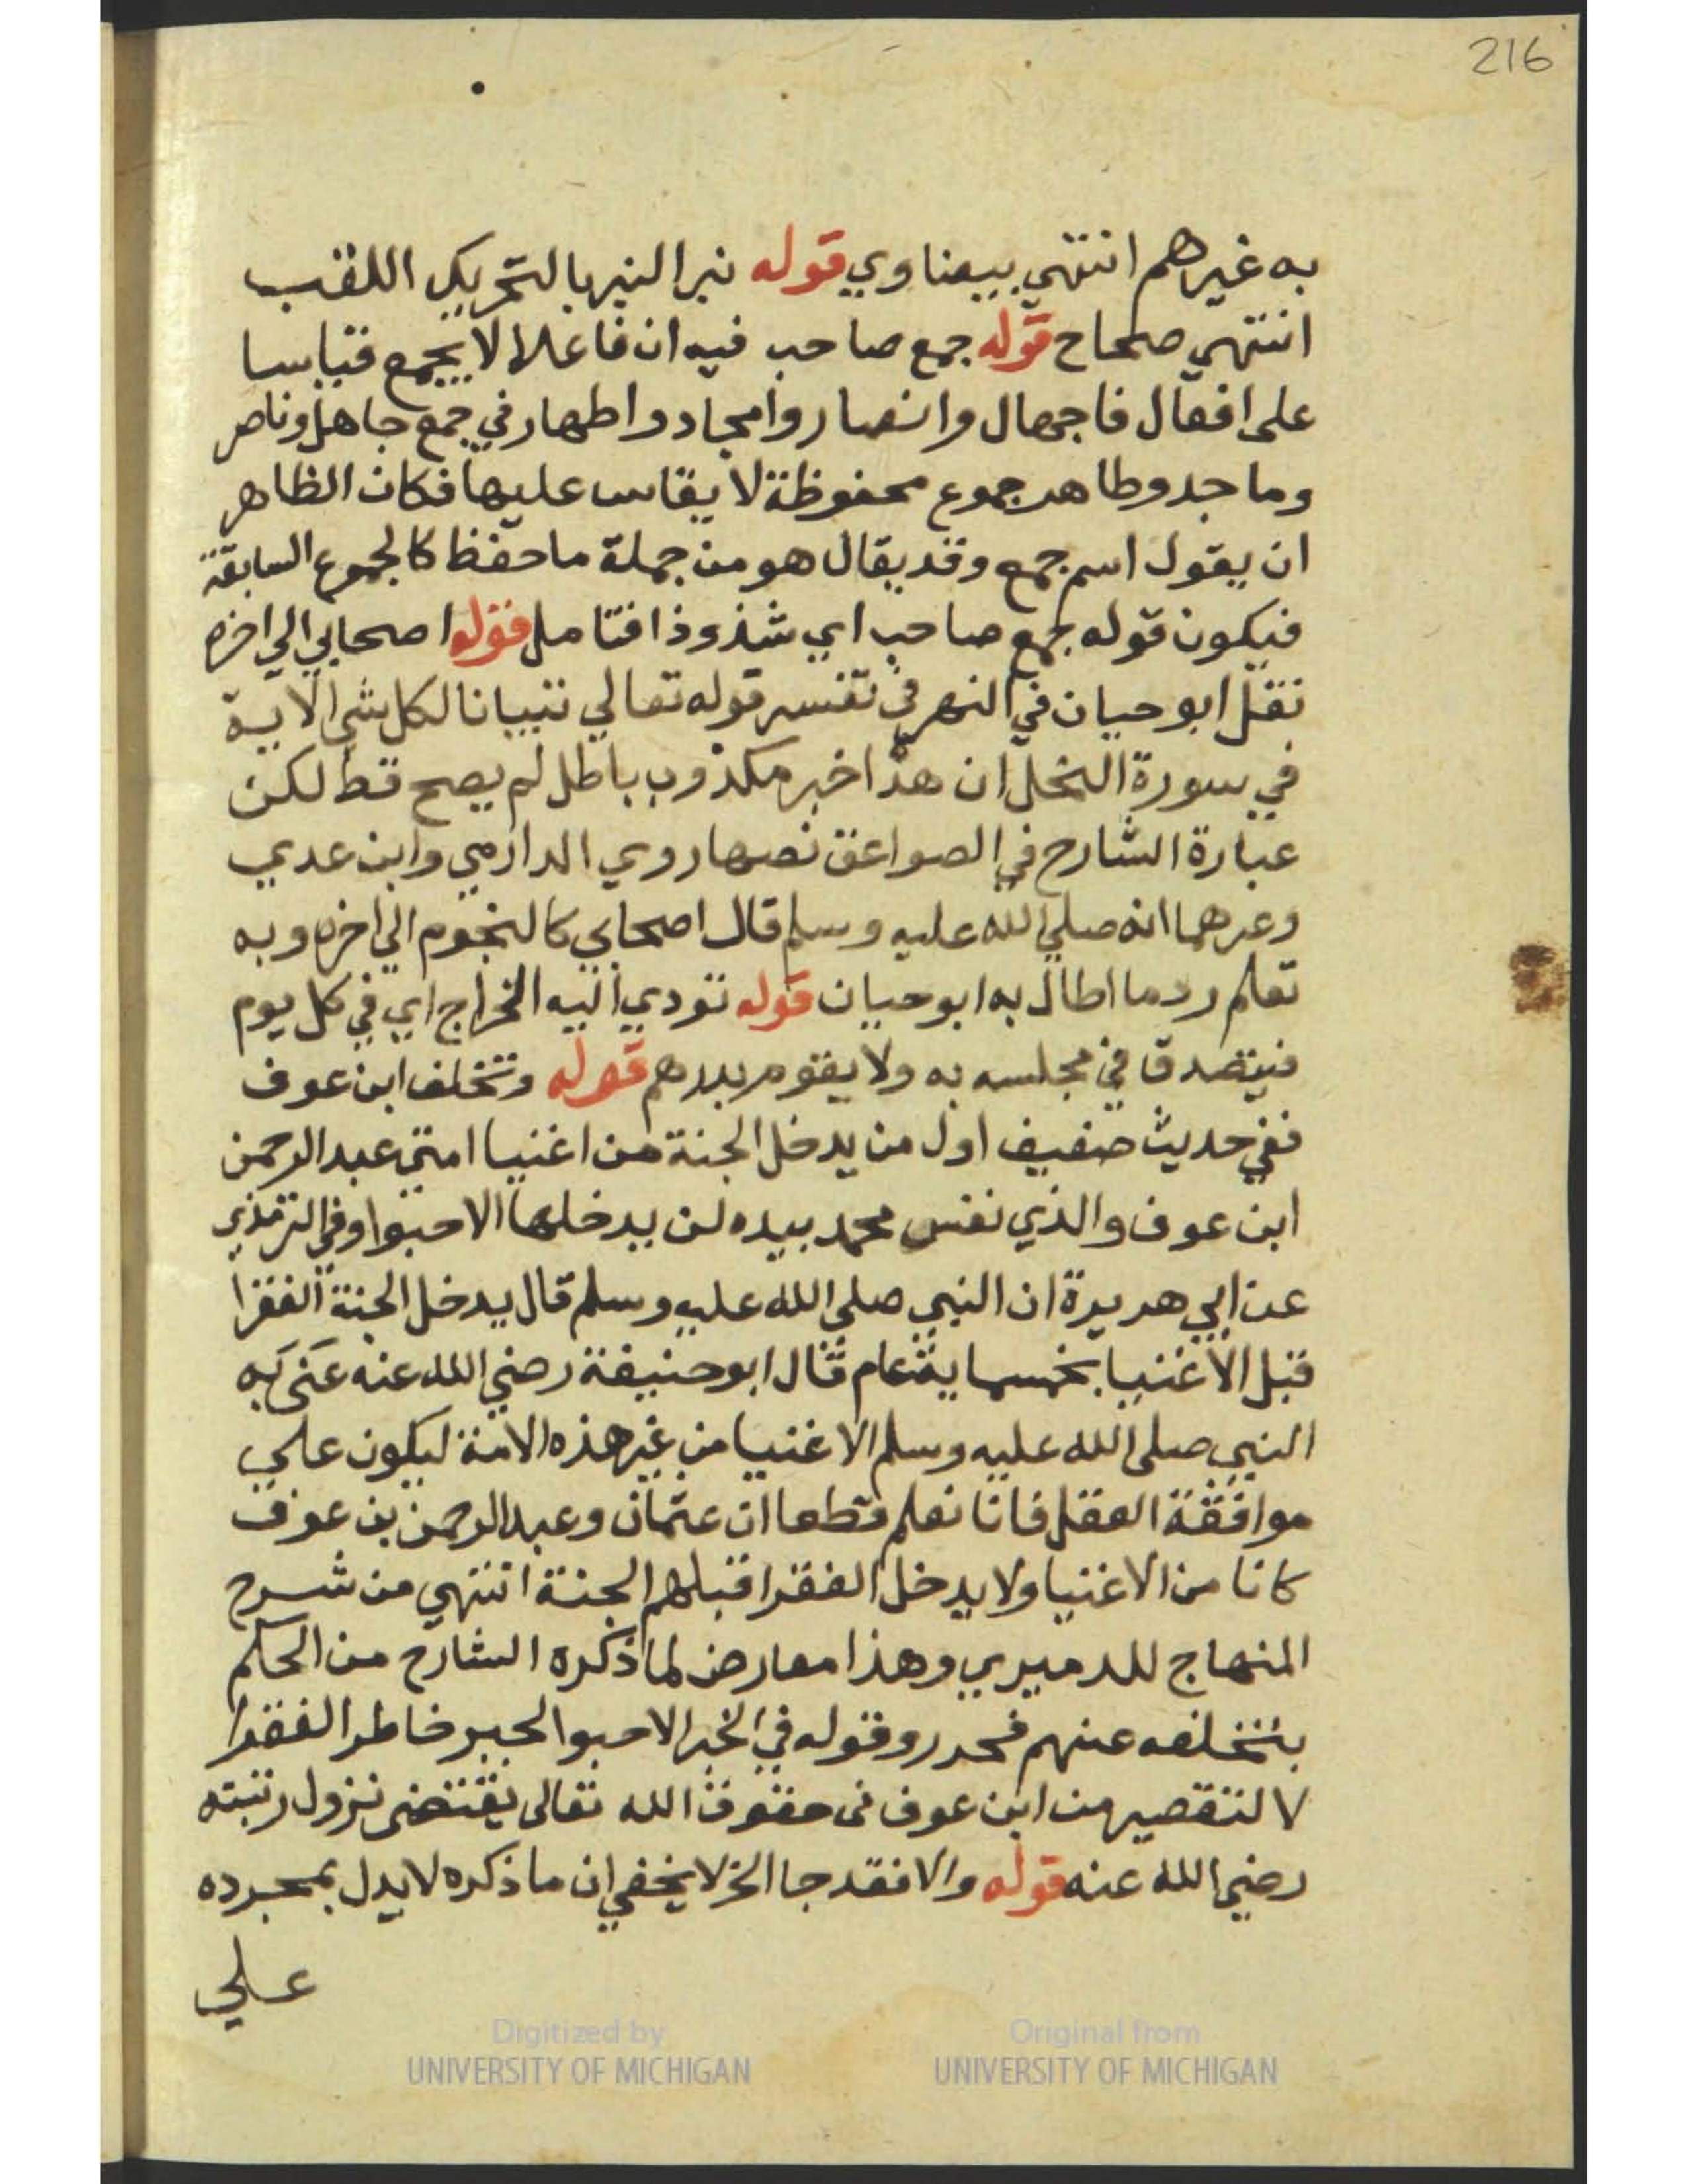 216
به غيرهم انتهي بيضاوي قوله نبر النبر بالتحريك اللقب
انتهي صحاح قوله جمع صاحب فيه ان فاعلا لا يجمع قياسا
على افعال فاجهال وانصار وامجاد واطهار في جمع جاهل وناصر
وماجد وطاهر جموع محفوظة لا يقاس عليها فكان الظاهر
ان يقول اسم جمع وقد يقال هو من جملة ما حفظ كالجموع السابقة
فيكون قوله جمع صاحب اي شذوذا فتامل قوله اصحابي الي اخره
نقل ابو حيان في النهر في تفسير قوله تعالي تبيانا لكل شي الاية
في سورة النحل ان هذا خبر مكذوب باطل لم يصح قط لكن
عبارة الشارح في الصواعق نصها روي الدارمي وابن عدي
وغيرهما انه صلي الله عليه وسلم قال اصحابي كالنجوم الي اخره وبه
تعلم رد ما اطال به ابو حيان قوله تودي اليه الخراج اي في كل يوم
فيتصدق في مجلسه به ولا يقوم بدرهم قوله وتخلف ابن عوف
ففي حديث ضعيف اول من يدخل الجنة من اغنيا امتي عبد الرحمن
ابن عوف والذي نفس محمد بيده لن يدخلها الا حبوا وفي الترمذي
عن ابي هريرة ان النبي صلي الله عليه وسلم قال يدخل الجنة الفقرا
قبل الاغنيا بخمسماية عام قال ابو حنيفة رضي الله عنه عنى به
النبي صلى الله عليه وسلم الاغنيا من غير هذه الامة ليكون علي
موافقة العقل فانا نعلم قطعا ان عثمان وعبد الرحمن بن عوف
كانا من الاغنيا ولا يدخل الفقرا قبلهم الجنة انتهي من شرح
المنهاج للدميري وهذا معارض لما ذكره الشارح من الحكم
بتخلفه عنهم فحرر وقوله في الخبر الا حبوا لجبر خاطر الفقرا
لا لتقصير من ابن عوف في حقوق الله تعالى يقتضي نزول رتبته
رضي الله عنه قوله والا فقد جا الخ لا يخفي ان ما ذكره لا يدل بمجرده
علي
Digitized by
UNIVERSITY OF MICHIGAN
Original from
UNIVERSITY OF MICHIGAN